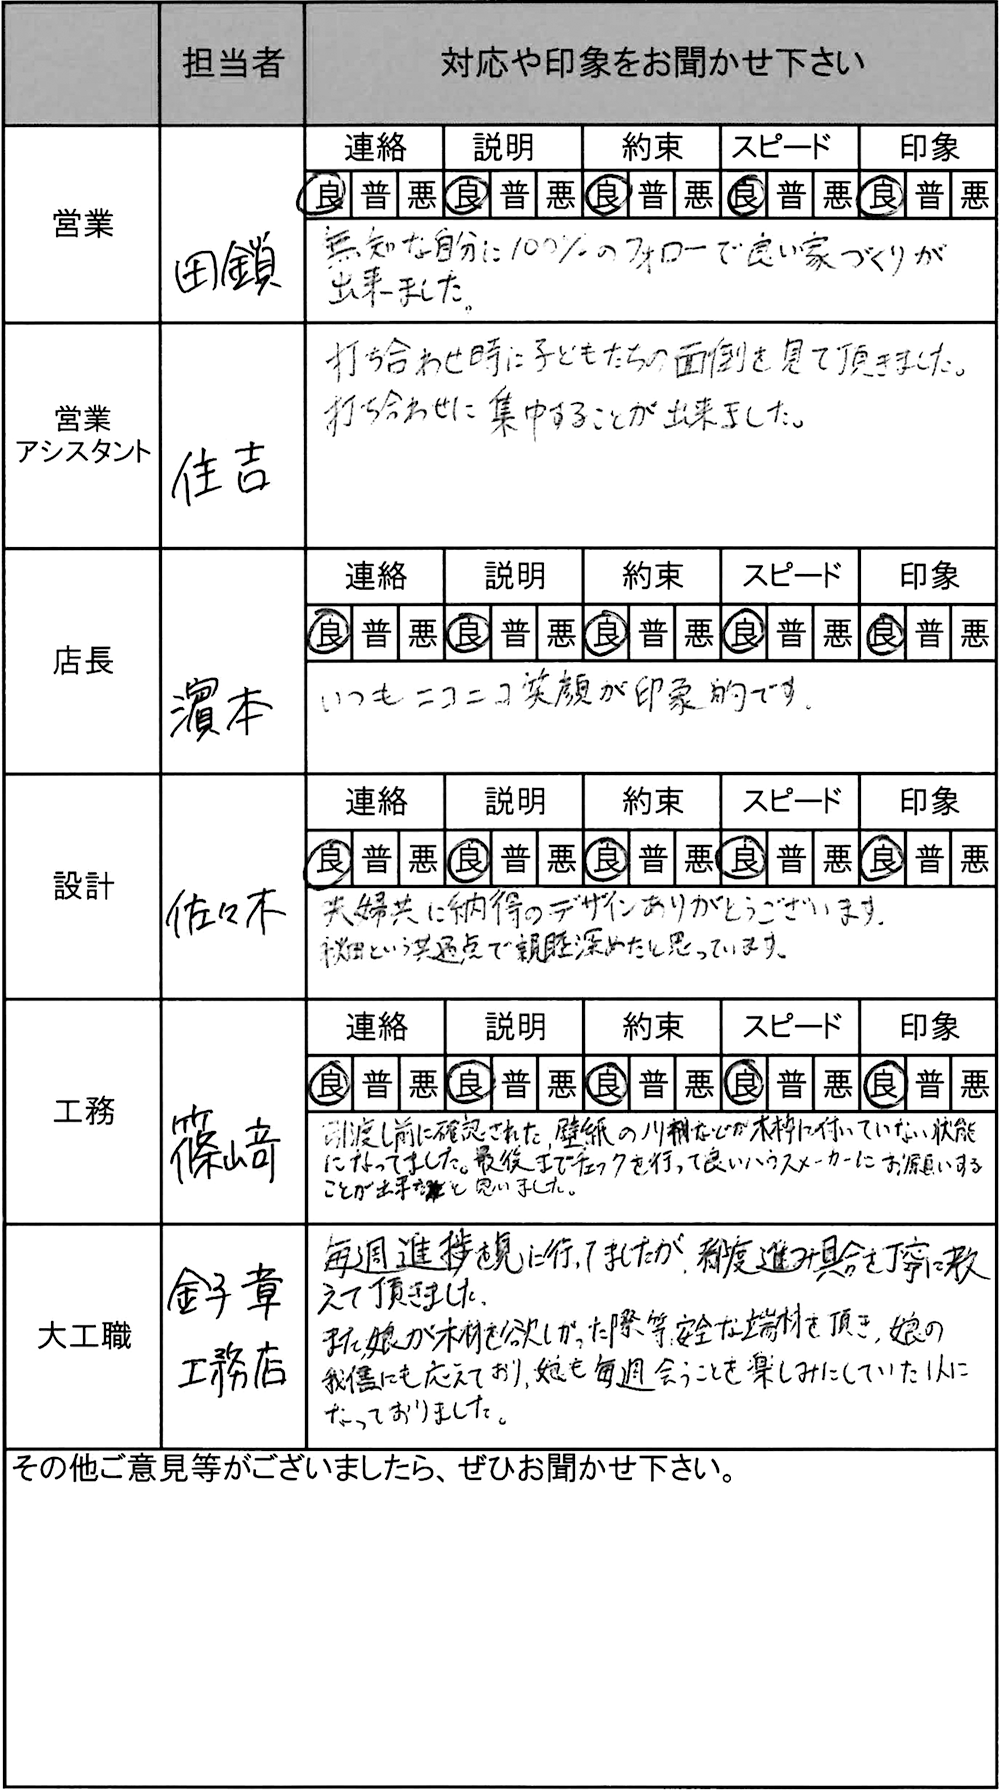 担当者 対応や印象をお聞かせ下さい
連絡 説明 約束 スピード 印象
良 普 悪 良 普 悪 良 普 悪 良 普 悪 良 普 悪
営業
田鎖
無知な自分に100%のフォローで良い家づくりが
出来ました。
打ち合わせ時に子どもたちの面倒を見て頂きました。
打ち合わせに集中することが出来ました。
営業
アシスタント
住吉
連絡 説明 約束 スピード 印象
良 普 悪 良 普 悪 良 普 悪 良 普 悪 良 普 悪
店長
濱本
いつもニコニコ笑顔が印象的です。
連絡 説明 約束 スピード 印象
良 普 悪 良 普 悪 良 普 悪 良 普 悪 良 普 悪
設計
佐々木
夫婦共に納得のデザインありがとうございます。
秋田という共通点で親睦深めたと思っています。
連絡 説明 約束 スピード 印象
良 普 悪 良 普 悪 良 普 悪 良 普 悪 良 普 悪
工務
篠﨑
引渡し前に確認された、壁紙のノリ糊などが木枠に付いていない状態
になってました。最後までチェックを行って良いハウスメーカーにお願いする
ことが出来たと思いました。
大工職
金子章
工務店
毎週進捗を見に行ってましたが、都度進み具合を丁寧に教
えて頂きました。
また、娘が木材を欲しがった際等、安全な端材を頂き、娘の
我儘にも応えており、娘も毎週会うことを楽しみにしていた1人に
なっておりました。
その他ご意見等がございましたら、ぜひお聞かせ下さい。